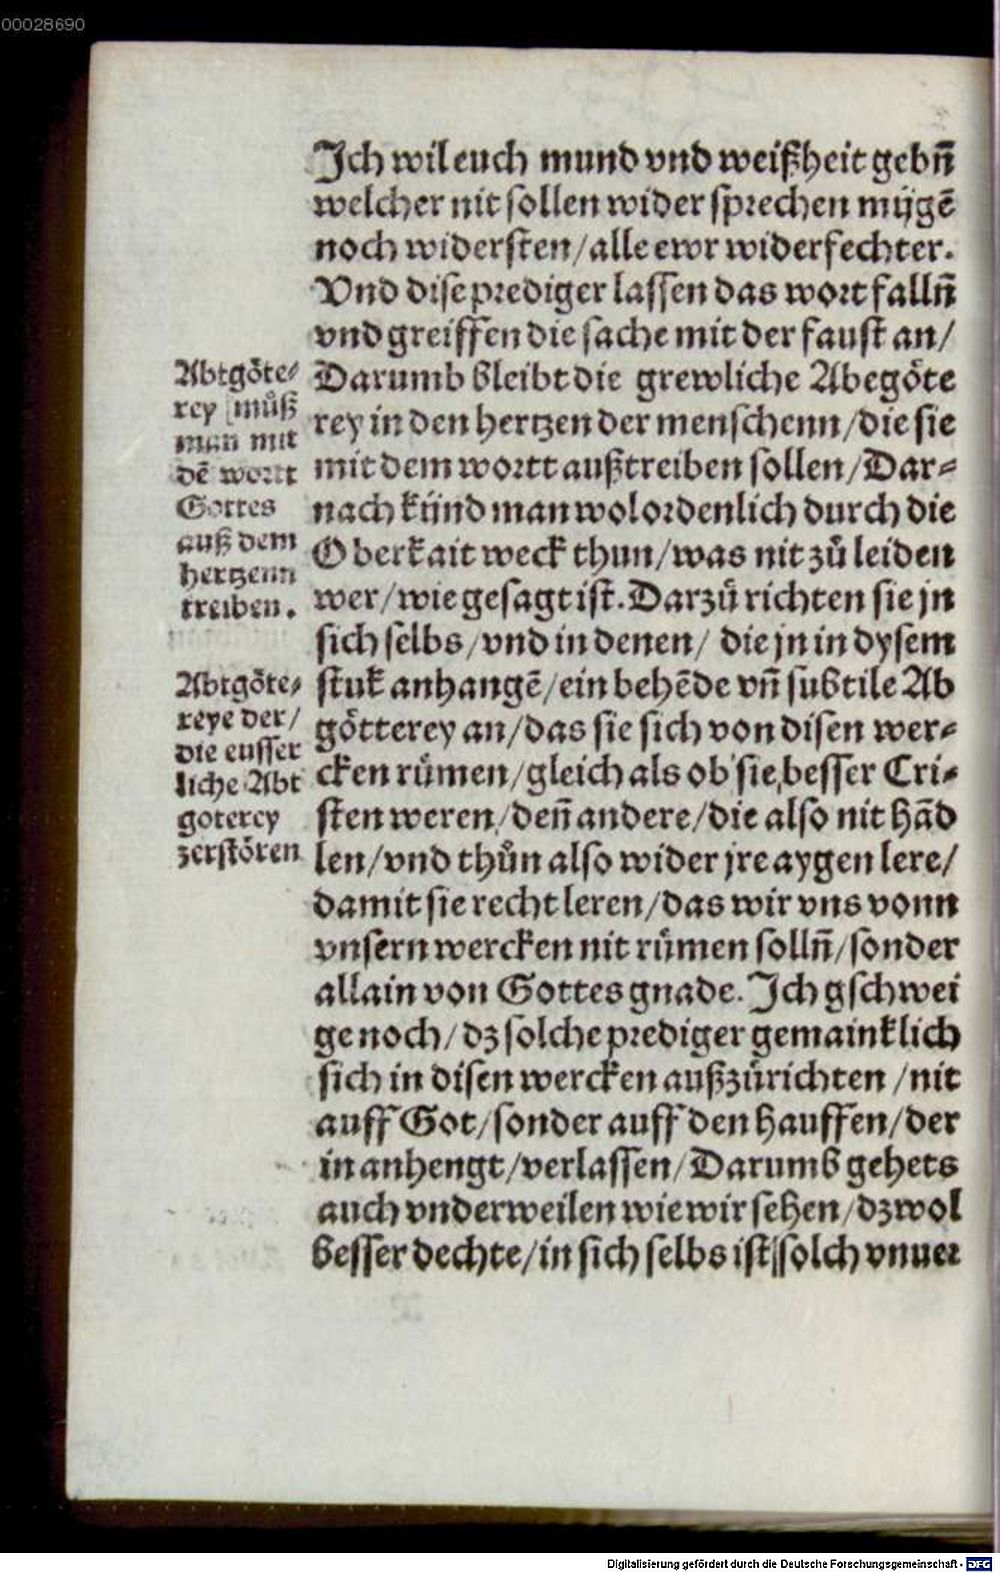 00028690
Jch wil euch mund vnd weißheit gebn̄
welcher nit sollen wider sprechen mügē
noch widersten/alle ewr widerfechter.
Vnd dise prediger lassen das wort falln̄
vnd greiffen die sache mit der faust an/
Darumb bleibt die grewliche Abegöte
rey in den hertzen der menschenn/die sie
mit dem wortt außtreiben sollen/Dar-
nach künd man wol ordenlich durch die
Oberkait weck thun/was nit zů leiden
wer/wie gesagt ist. Darzů richten sie jn
sich selbs/vnd in denen/ die jn in dysem
stuk anhangē/ein behēde vn̄ subtile Ab
götterey an/das sie sich von disen wer-
cken růmen/gleich als ob sie besser Cri-
sten weren/den̄ andere/die also nit hād
len/vnd thůn also wider jre aygen lere/
damit sie recht leren/das wir vns vonn
vnsern wercken nit růmen solln̄/sonder
allain von Gottes gnade. Jch gschwei
ge noch/dz solche prediger gemainklich
sich in disen wercken außzůrichten /nit
auff Got/sonder auff den hauffen/der
in anhengt/verlassen/Darumb gehets
auch vnderweilen wie wir sehen/dz wol
besser dechte/in sich selbs ist/solch vnuer
Abtgöte-
rey můß
man mit
dē wortt
Gottes
auß dem
hertzenn
treiben.
Abtgöte-
reye der/
die eusser
liche Abt
goterey
zerstören
Digitalisierung gefördert durch die Deutsche Forschungsgemeinschaft - DFG